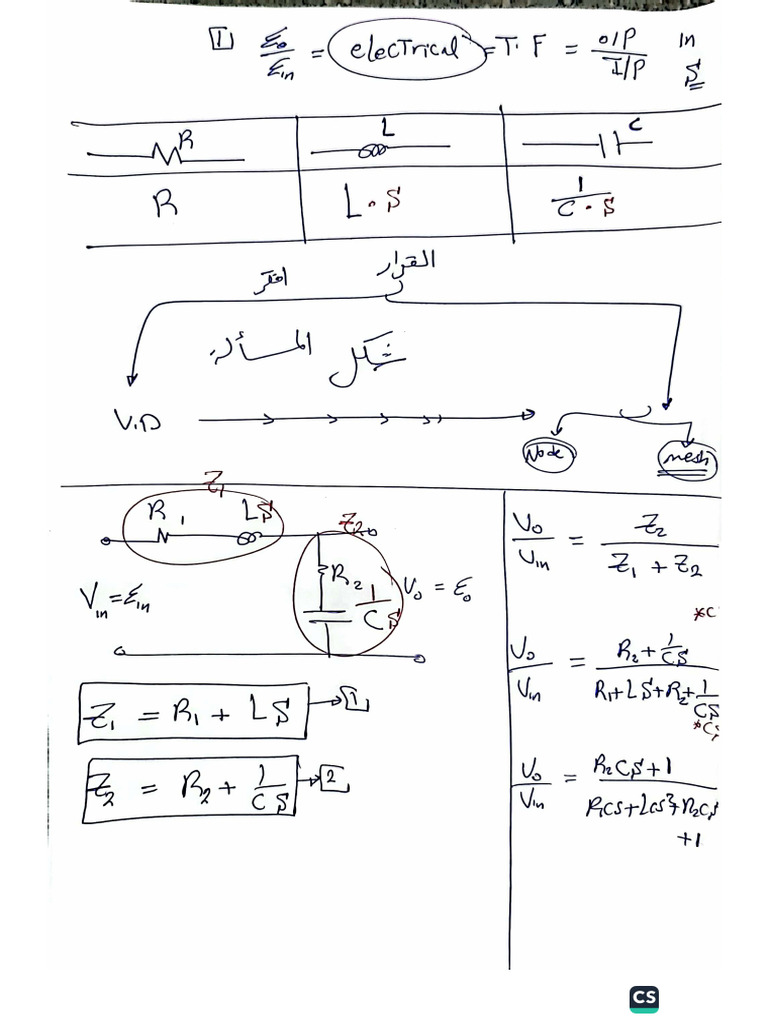 1 Eo/Ein = electrical = T.F = O/P / I/P in S
R L C
R L.S 1/C.S
القرار
افكر
شكل المسألة
V.D
Node mesh
Z1
R1 LS Z2
R2
Vin = Ein 1/CS Vo = Eo
Z1 = R1 + LS → 1
Z2 = R2 + 1/CS → 2
Vo/Vin = Z2 / Z1 + Z2
*C
Vo/Vin = R2 + 1/CS / R1 + LS + R2 + 1/CS
*CS
Vo/Vin = R2CS + 1 / R1CS + LCS² + R2CS
+1
CS